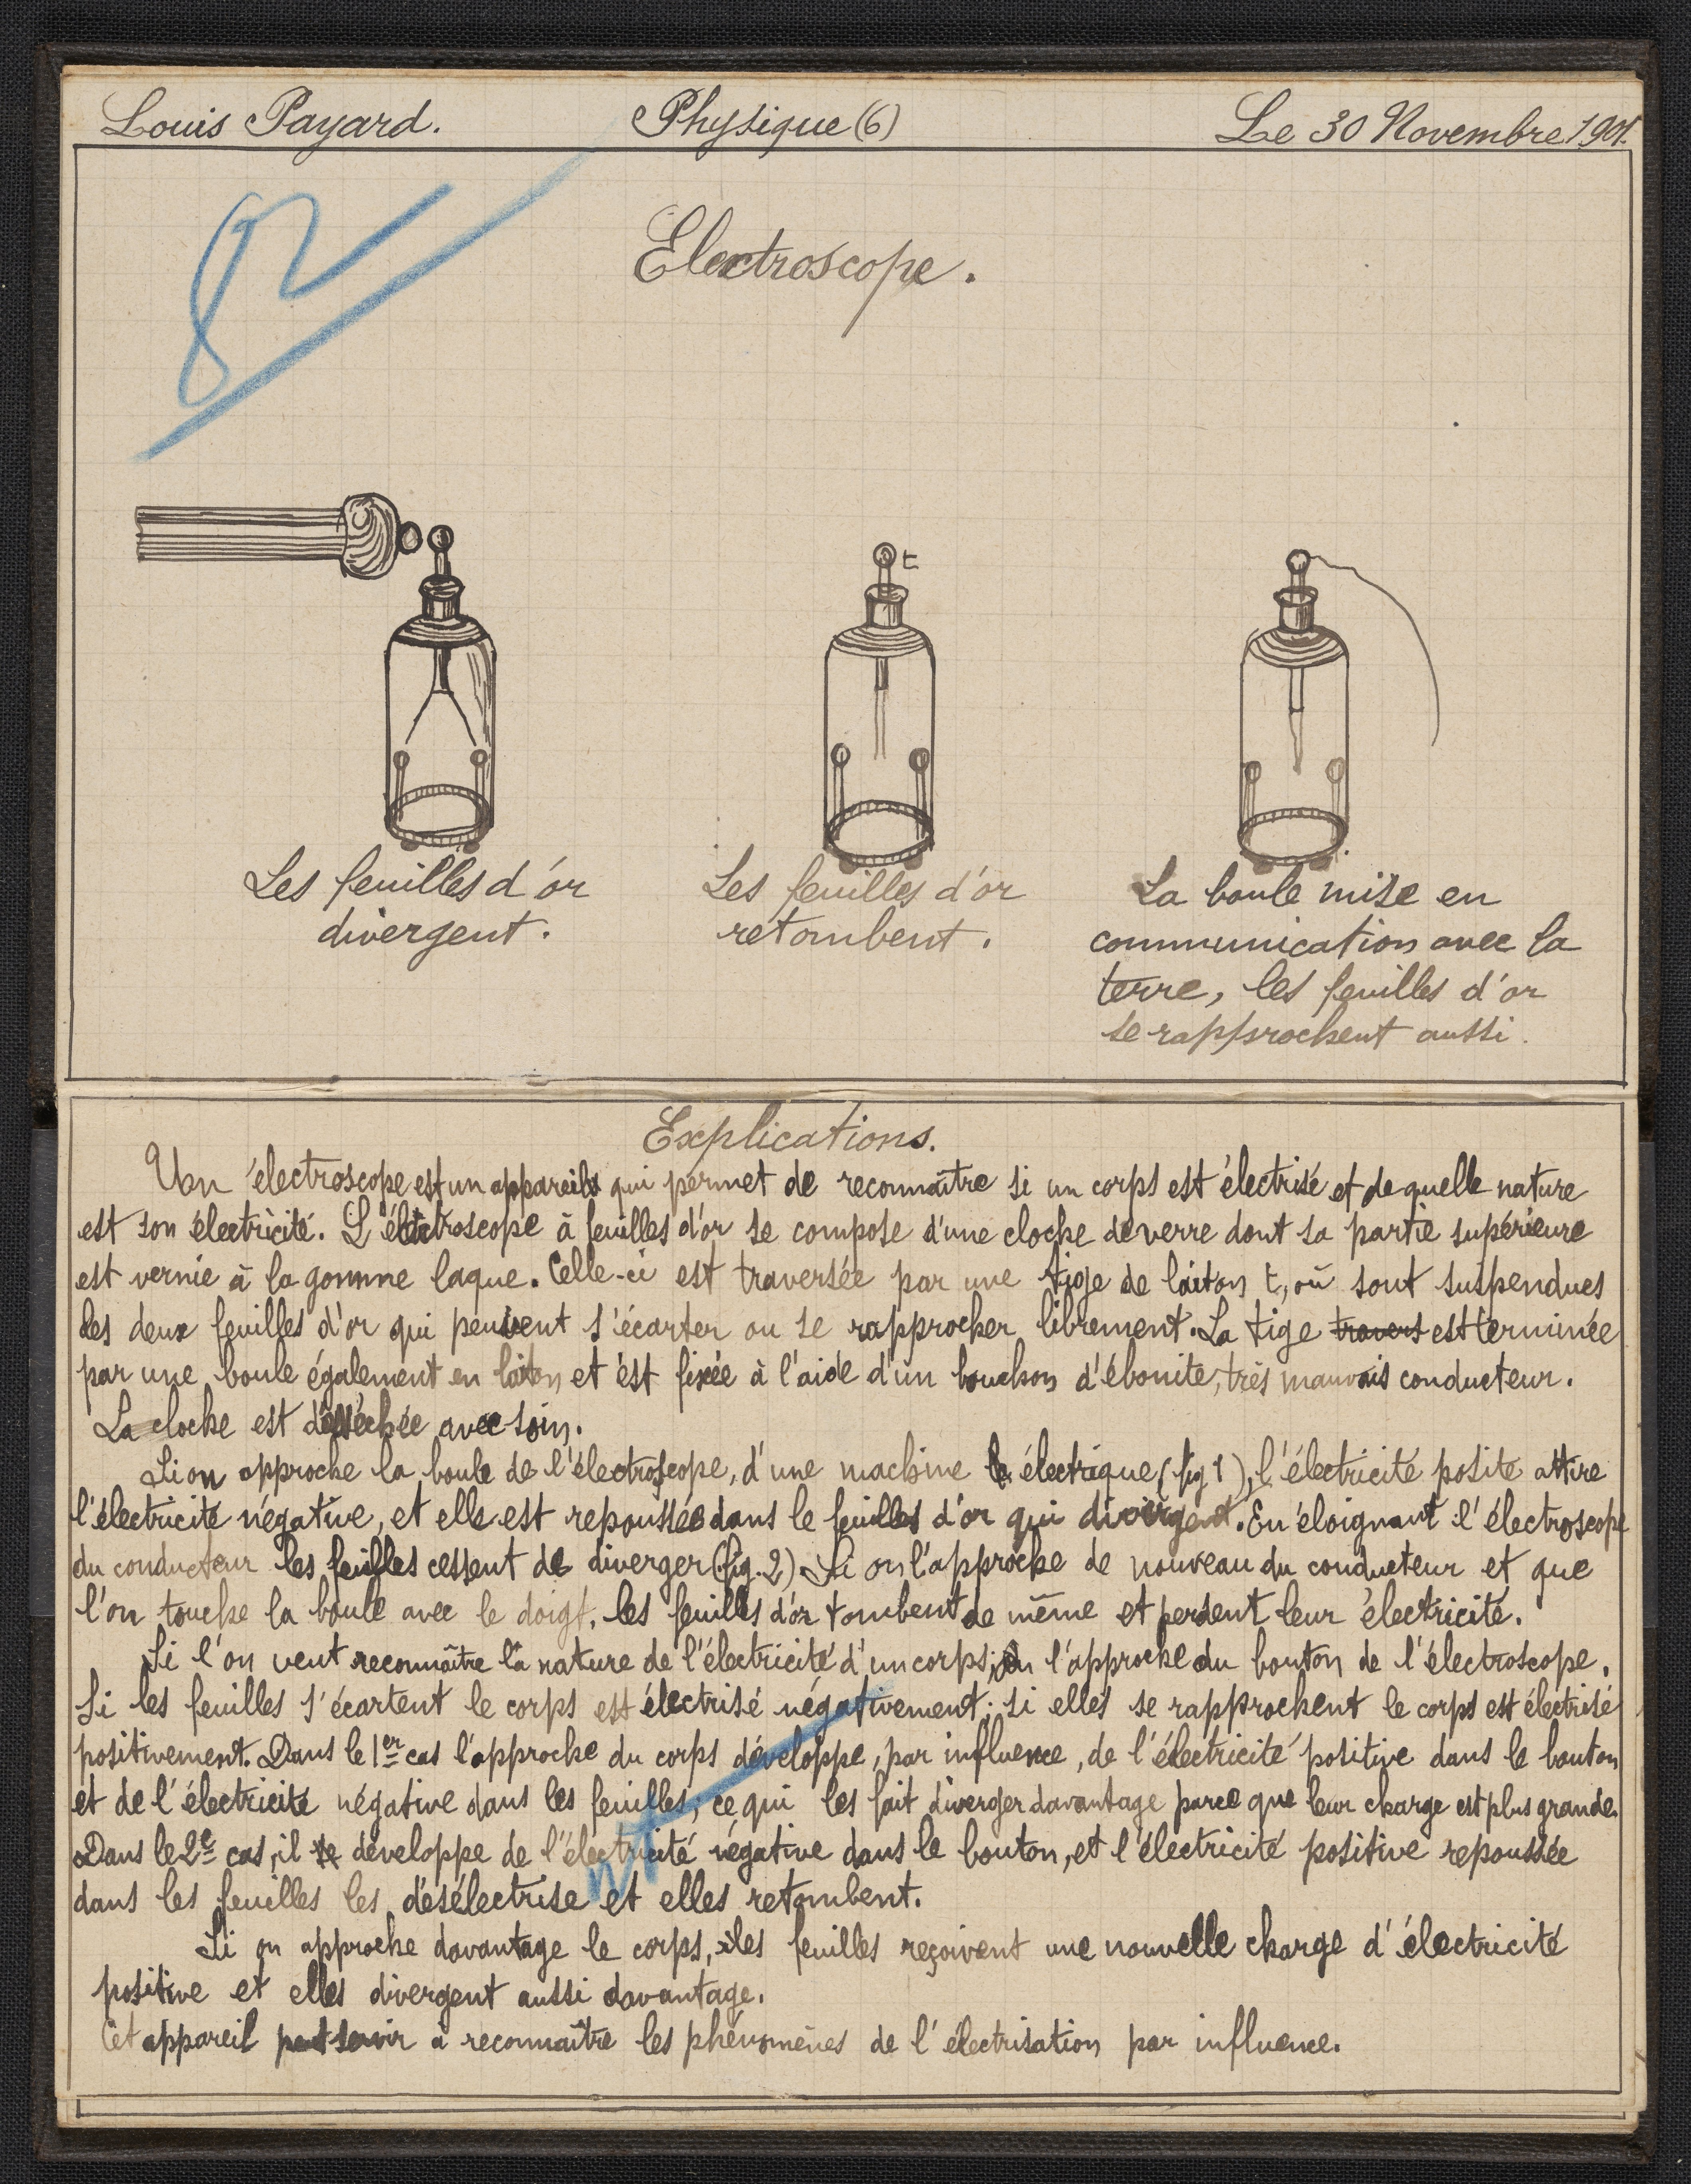 Louis Payard. Physique (6) Le 30 Novembre 1901.
Electroscope.
t
Les feuilles d'or
divergent.
Les feuilles d'or
retombent.
La boule mise en
communication avec la
terre, les feuilles d'or
se rapprochent aussi.
Explications.
Un électroscope est un appareil qui permet de reconnaître si un corps est électrisé et de quelle nature
est son électricité. L'électroscope à feuilles d'or se compose d'une cloche de verre dont sa partie supérieure
est vernie à la gomme laque. Celle-ci est traversée par une tige de laiton t, où sont suspendues
les deux feuilles d'or qui peuvent s'écarter ou se rapprocher librement. La tige travers est terminée
par une boule également en laiton et est fixée à l'aide d'un bouchon d'ébonite, très mauvais conducteur.
La cloche est désséchée avec soin.
Si on approche la boule de l'électroscope, d'une machine électrique (fig 1), l'électricité posite attire
l'électricité négative, et elle est repoussée dans le feuilles d'or qui divergent. En éloignant l'électroscope
du conducteur les feuilles cessent de diverger (fig. 2) Si on l'approche de nouveau du conducteur et que
l'on touche la boule avec le doigt, les feuilles d'or tombent de même et perdent leur électricité.
Si l'on veut reconnaître la nature de l'électricité d'un corps, on l'approche du bouton de l'électroscope.
Si les feuilles s'écartent le corps est électrisé négativement; si elles se rapprochent le corps est électrisé
positivement. Dans le 1er cas l'approche du corps développe, par influence, de l'électricité positive dans le bouton
et de l'électricité négative dans les feuilles; ce qui les fait diverger davantage parce que leur charge est plus grande.
Dans le 2e cas, il se développe de l'électricité négative dans le bouton, et l'électricité positive repoussée
dans les feuilles les désélectrise et elles retombent.
Si on approche davantage le corps, les feuilles reçoivent une nouvelle charge d'électricité
positive et elles divergent aussi davantage.
Cet appareil peut servir à reconnaître les phénomènes de l'électrisation par influence.